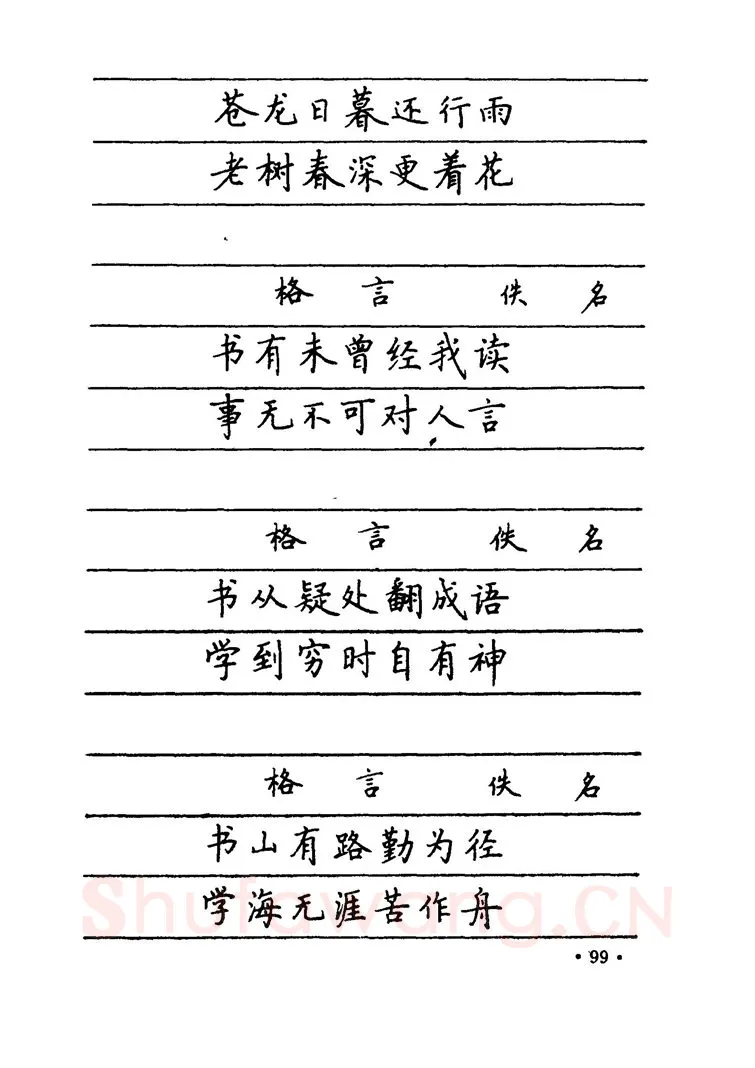 苍龙日暮还行雨
老树春深更着花
格言 佚名
书有未曾经我读
事无不可对人言
格言 佚名
书从疑处翻成语
学到穷时自有神
格言 佚名
书山有路勤为径
学海无涯苦作舟
Shufawang.CN
·99·